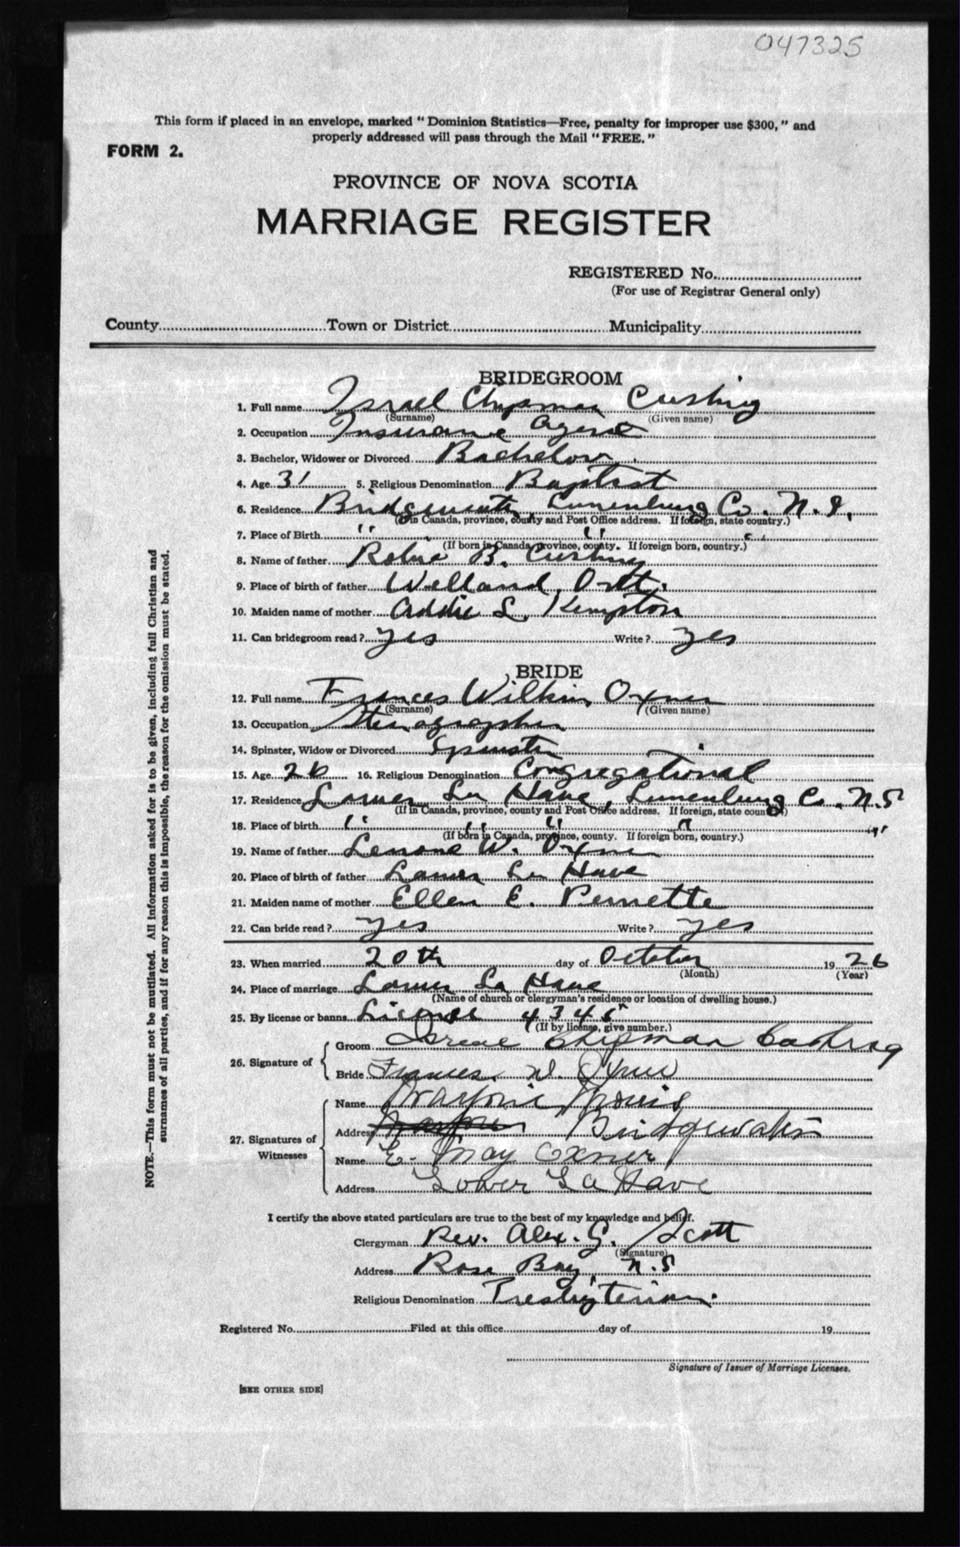 047325
This form if placed in an envelope, marked "Dominion Statistics—Free, penalty for improper use $300," and
properly addressed will pass through the Mail "FREE."
FORM 2.
PROVINCE OF NOVA SCOTIA
MARRIAGE REGISTER
REGISTERED No.
(For use of Registrar General only)
County Town or District Municipality
BRIDEGROOM
1. Full name Israel Chipman Cushing
(Surname) (Given name)
2. Occupation Insurance Agent
3. Bachelor, Widower or Divorced Bachelor
4. Age 31 5. Religious Denomination Baptist
6. Residence Bridgewater, Lunenburg Co. N.S.
(If in Canada, province, county and Post Office address. If foreign, state country.)
7. Place of Birth " " "
(If born in Canada, province, county. If foreign born, country.)
8. Name of father Robie B. Cushing
9. Place of birth of father Welland, Ont.
10. Maiden name of mother Addie L. Kempton
11. Can bridegroom read? Yes Write? Yes
BRIDE
12. Full name Frances Wilkin Oxner
(Surname) (Given name)
13. Occupation Stenographer
14. Spinster, Widow or Divorced Spinster
15. Age 26 16. Religious Denomination Congregational
17. Residence Lower La Have, Lunenburg Co. N.S
(If in Canada, province, county and Post Office address. If foreign, state country)
18. Place of birth " " " " "
(If born in Canada, province, county. If foreign born, country.)
19. Name of father W. Oxner
20. Place of birth of father Lower La Have
21. Maiden name of mother Ellen E. Pernette
22. Can bride read? Yes Write? Yes
23. When married 20th day of October 1926
(Month) (Year)
24. Place of marriage Lower La Have
(Name of church or clergyman's residence or location of dwelling house.)
25. By license or banns License 4345
(If by license, give number.)
26. Signature of Groom Israel Chipman Cushing
Bride Frances W. Oxner
27. Signatures of Witnesses
Name Marjorie
Address Bridgewater
Name E. May Oxner
Address Lower La Have
I certify the above stated particulars are true to the best of my knowledge and belief.
Clergyman Rev. Alex. G. Scott
(Signature)
Address Rose Bay, N.S
Religious Denomination Presbyterian.
Registered No. Filed at this office day of 19
Signature of Issuer of Marriage Licenses.
[SEE OTHER SIDE]
NOTE.—This form must not be mutilated. All information asked for is to be given, including full Christian and
surnames of all parties, and if for any reason this is impossible, the reason for the omission must be stated.